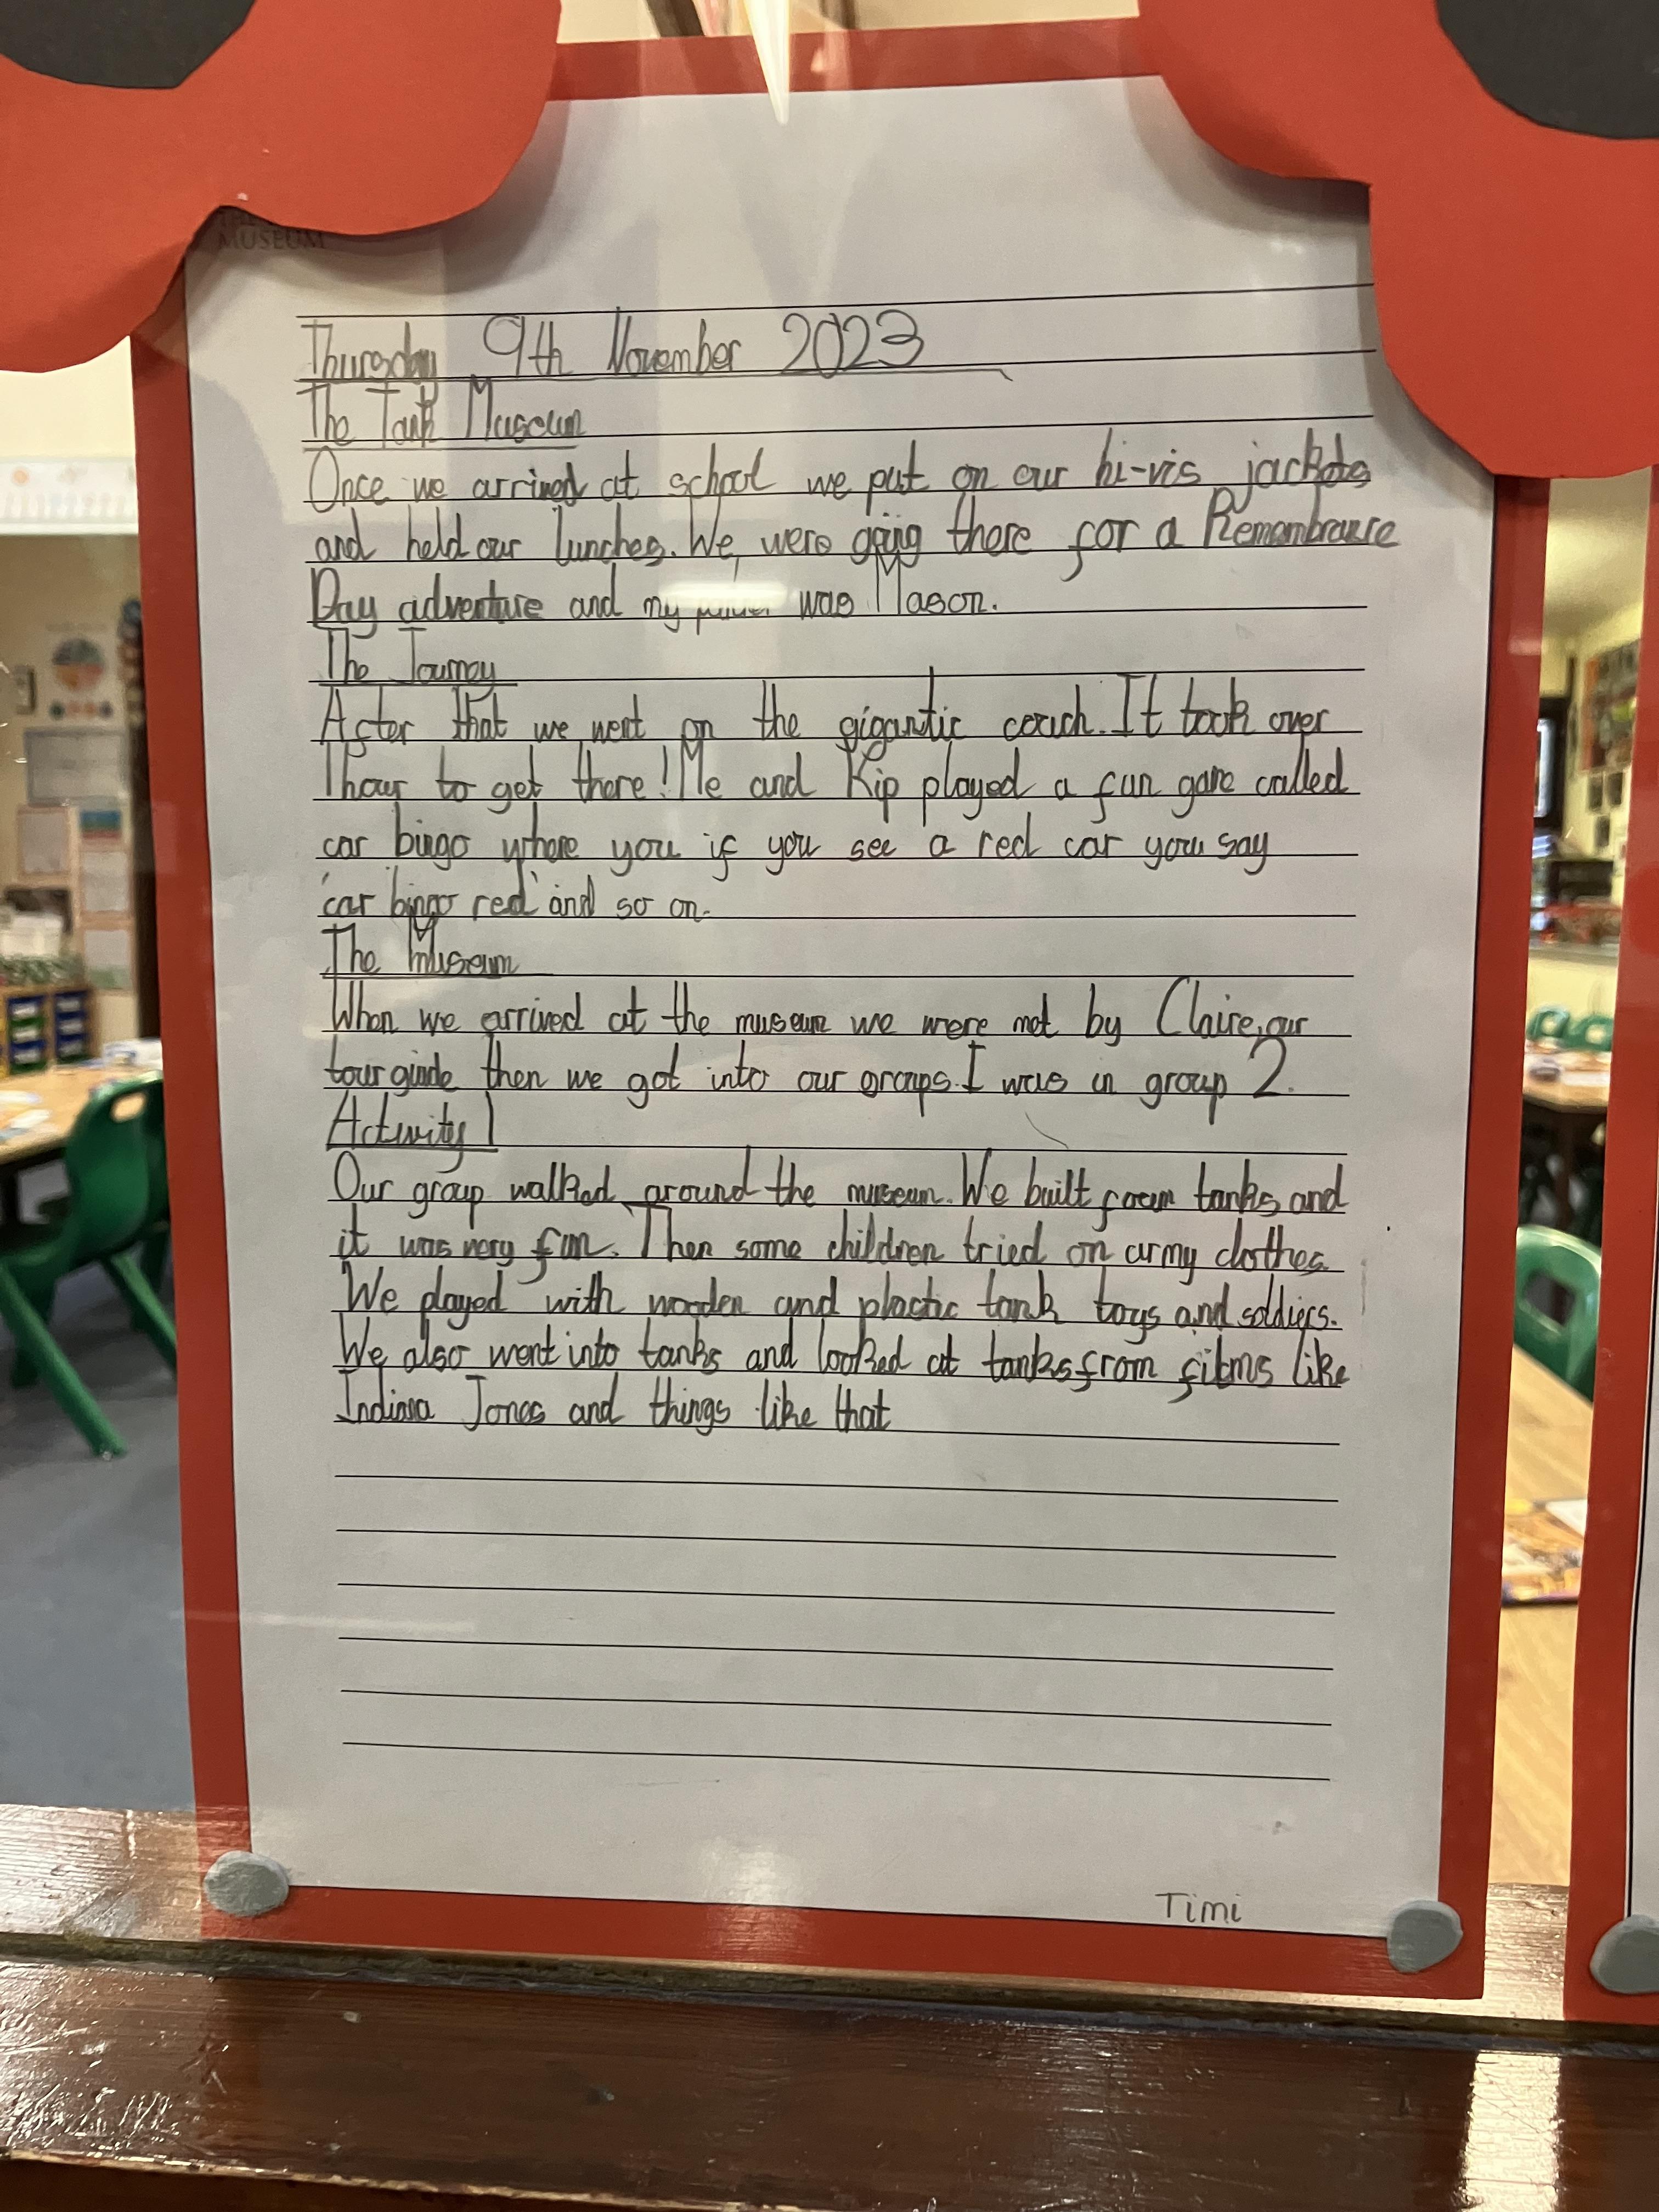 MUSEUM
Thursday 9th November 2023
The Tank Museum
Once we arrived at school we put on our hi-vis jackets
and held our lunches. We were going there for a Remembrance
Day adventure and my was Mason.
The Journey
After that we went on the gigantic coach. It took over
1 hour to get there! Me and Kip played a fun game called
car bingo where you if you see a red car you say
'car bingo red' and so on.
The Museum
When we arrived at the museum we were met by Claire, our
tour giude then we got into our groups. I was in group 2.
Activity 1
Our group walked around the museum. We built foam tanks and
it was very fun. Then some children tried on army clothes.
We played with wooden and plastic tank toys and soldiers.
We also went into tanks and looked at tanks from films like
Indiana Jones and things like that
Timi